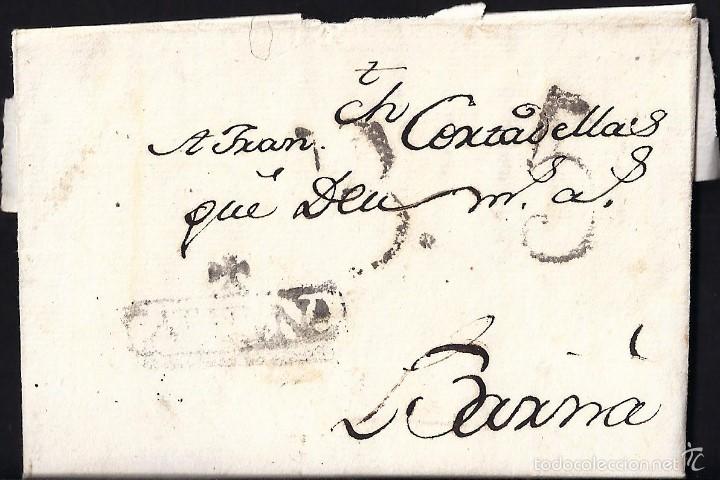 A Fran.ch Cortadellas
que Deu m.s a.s
Barna
5
todocoleccion.net